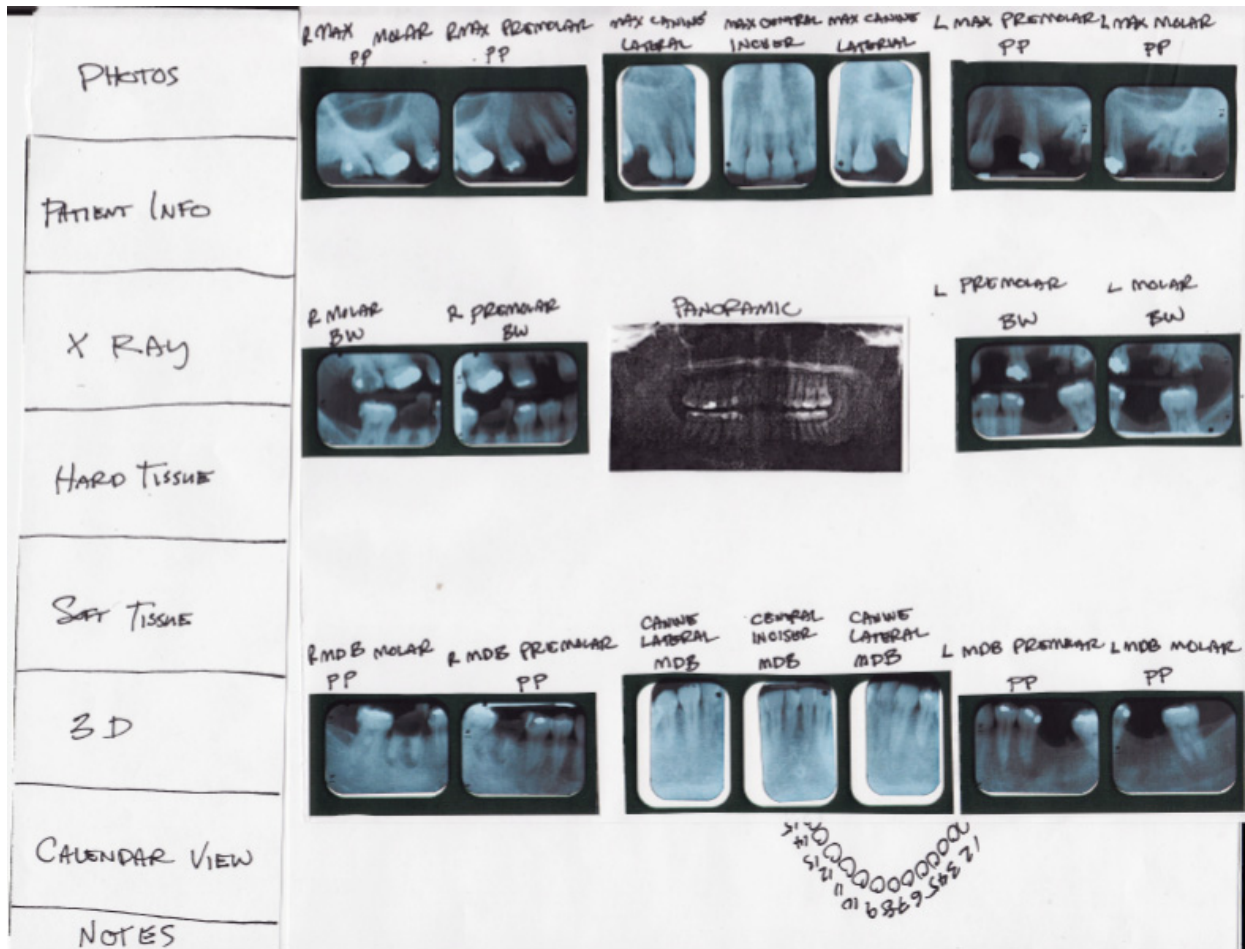 PHOTOS
PATIENT INFO
X RAY
HARD TISSUE
SOFT TISSUE
3D
CALENDAR VIEW
NOTES
R MAX MOLAR
PP
RMAX PREMOLAR
PP
MAX CANINE
LATERAL
MAX CENTRAL
INCISER
MAX CANINE
LATERIAL
L MAX PREMOLAR
PP
L MAX MOLAR
PP
R MOLAR
BW
R PREMOLAR
BW
PANORAMIC
L PREMOLAR
BW
L MOLAR
BW
R MDB MOLAR
PP
R MDB PREMOLAR
PP
CANINE
LATERAL
MDB
CENTRAL
INCISER
MDB
CANINE
LATERAL
MDB
L MDB PREMOLAR
PP
L MDB MOLAR
PP
1 2 3 4 5 6 7 8 9 10 11 12 13 14 15